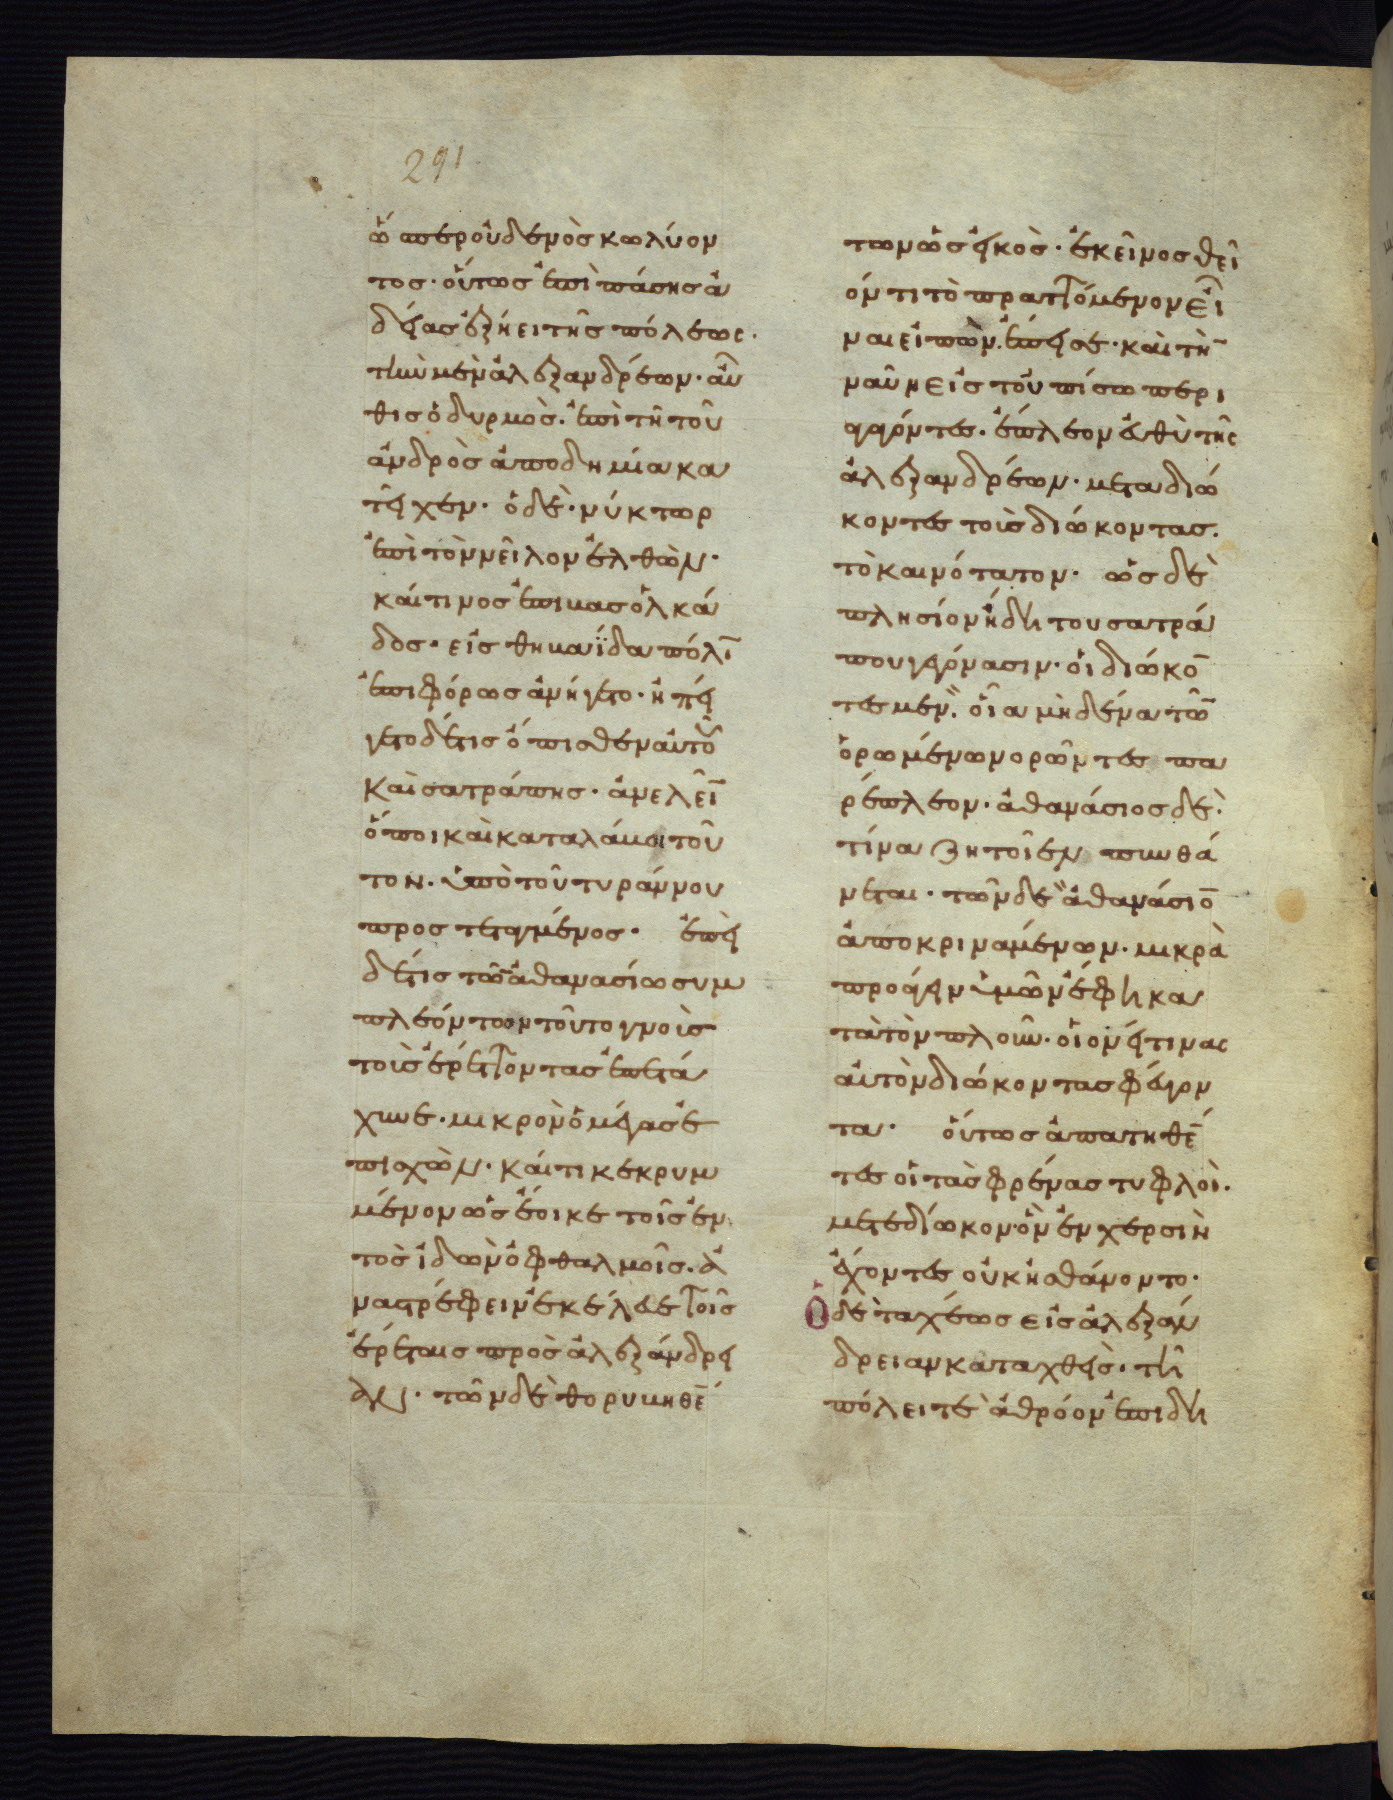 291
ὥσπερ οὐδενὸς κωλύον
τος· οὕτως ἐπὶ πάσης ἀ
δείας ἐξήει τῆς πόλεως.
τὴν μὲν ἀλεξανδρέων· αὖ
θις ὀδυρμὸς· ἐπὶ τῆ τοῦ
ἀνδρὸς ἀποδημία κα
τεῖχεν· ὁ δὲ· νύκτωρ
ἐπὶ τὸν νεῖλον ἐλθὼν·
καί τινος ἐπιβὰς ὁλκά
δος· εἰς θηβαΐδα πόλῑ
ἐπιφόρως ἀνήγετο· ἠπεί
γετο δέ τις ὄπισθεν αὐτοῦ
καὶ σατράπης· ἀνελεῖ̄
ὅποι καὶ καταλάβοι τοῦ
τον· ὑπὸ τοῦ τυράννου
προστεταγμένος· ἐπεὶ
δέ τις τῶ ἀθανασίω συμ
πλεόντων τοῦτο γνοὺς
τοὺς ἐρέττοντας ἐπετά
χυνε· μικρὸν ὁ μέγας ἐ
πισχὼν· καί τι κεκρυμ
μένον ὡς ἔοικε τοῖς ἐν
τὸς ἰδὼν ὀφθαλμοῖς· ἀ
ναστρέφειν ἐκέλευε τοῖς
ἐρέταις πρὸς ἀλεξάνδρει
αν· τῶν δὲ θορυβηθέ̄
των ὡς εἰκὸς· ἐκεῖνος θεῖ
όν τι τὸ πραττόμενον εἶ
ναι εἰπὼν· ἔπεισε· καὶ τὴ̄
ναῦν εἰς τοὐπίσω περι
αγαγόντες· ἔπλεον εὐθὺ τῆς
ἀλεξανδρέων· μεταδιώ
κοντες τοὺς διώκοντας.
τὸ καινότατον· ὡς δὲ
πλησίον ἤδη του σατρά
που γεγόνασιν· οἱ διώκο̄
τες μὲν· οἷα μηδένα τῶ̄
ὁρωμένων ὁρῶντες πα
ρέπλεον· ἀθανάσιος δὲ·
τίνα ζητοῖεν πυνθά
νεται· τῶν δὲ ἀθανάσιο̄
ἀποκριναμένων· μικρὰ
προάγειν ὑμῶν ἔφη κα
τὰ τὸν πλοῦν· οἷον εἴ τινας
αὐτὸν διώκοντας φεύγον
τα· οὕτως ἀπατηθέ̄
τες οἱ τὰς φρένας τυφλοὶ.
μετεδίωκον· ὃν ἐν χερσὶν
ἔχοντες οὐκ ἠσθάνοντο·
Ὁ δὲ ταχέως εἰς ἀλεξάν
δρειαν καταχθεὶς· τῆ
πόλει τὲ ἀθρόον ἐπιδη